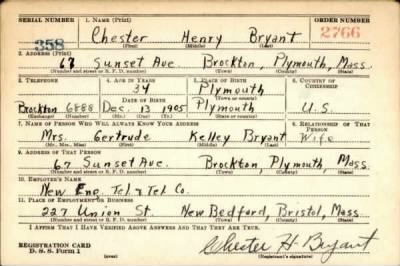 SERIAL NUMBER 1. NAME (Print) ORDER NUMBER
358 Chester Henry Bryant 2766
(First) (Middle) (Last)
2. ADDRESS (Print)
67 Sunset Ave. Brockton, Plymouth, Mass.
(Number and street or R. F. D. number) (Town) (County) (State)
3. TELEPHONE 4. AGE IN YEARS 5. PLACE OF BIRTH 6. COUNTRY OF CITIZENSHIP
34 Plymouth
DATE OF BIRTH (Town or county)
Brockton 6888 Dec. 13 1905 Plymouth U.S.
(Exchange) (Number) (Mo.) (Day) (Yr.) (State or country)
7. NAME OF PERSON WHO WILL ALWAYS KNOW YOUR ADDRESS 8. RELATIONSHIP OF THAT PERSON
Mrs. Gertrude Kelley Bryant Wife
(Mr., Mrs., Miss) (First) (Middle) (Last)
9. ADDRESS OF THAT PERSON
67 Sunset Ave. Brockton, Plymouth, Mass.
(Number and street or R. F. D. number) (Town) (County) (State)
10. EMPLOYER'S NAME
New Eng. Tel & Tel Co.
11. PLACE OF EMPLOYMENT OR BUSINESS
227 Union St. New Bedford, Bristol, Mass.
(Number and street or R. F. D. number) (Town) (County) (State)
I AFFIRM THAT I HAVE VERIFIED ABOVE ANSWERS AND THAT THEY ARE TRUE.
REGISTRATION CARD Chester H. Bryant
D. S. S. Form 1 (over) (Registrant's signature)